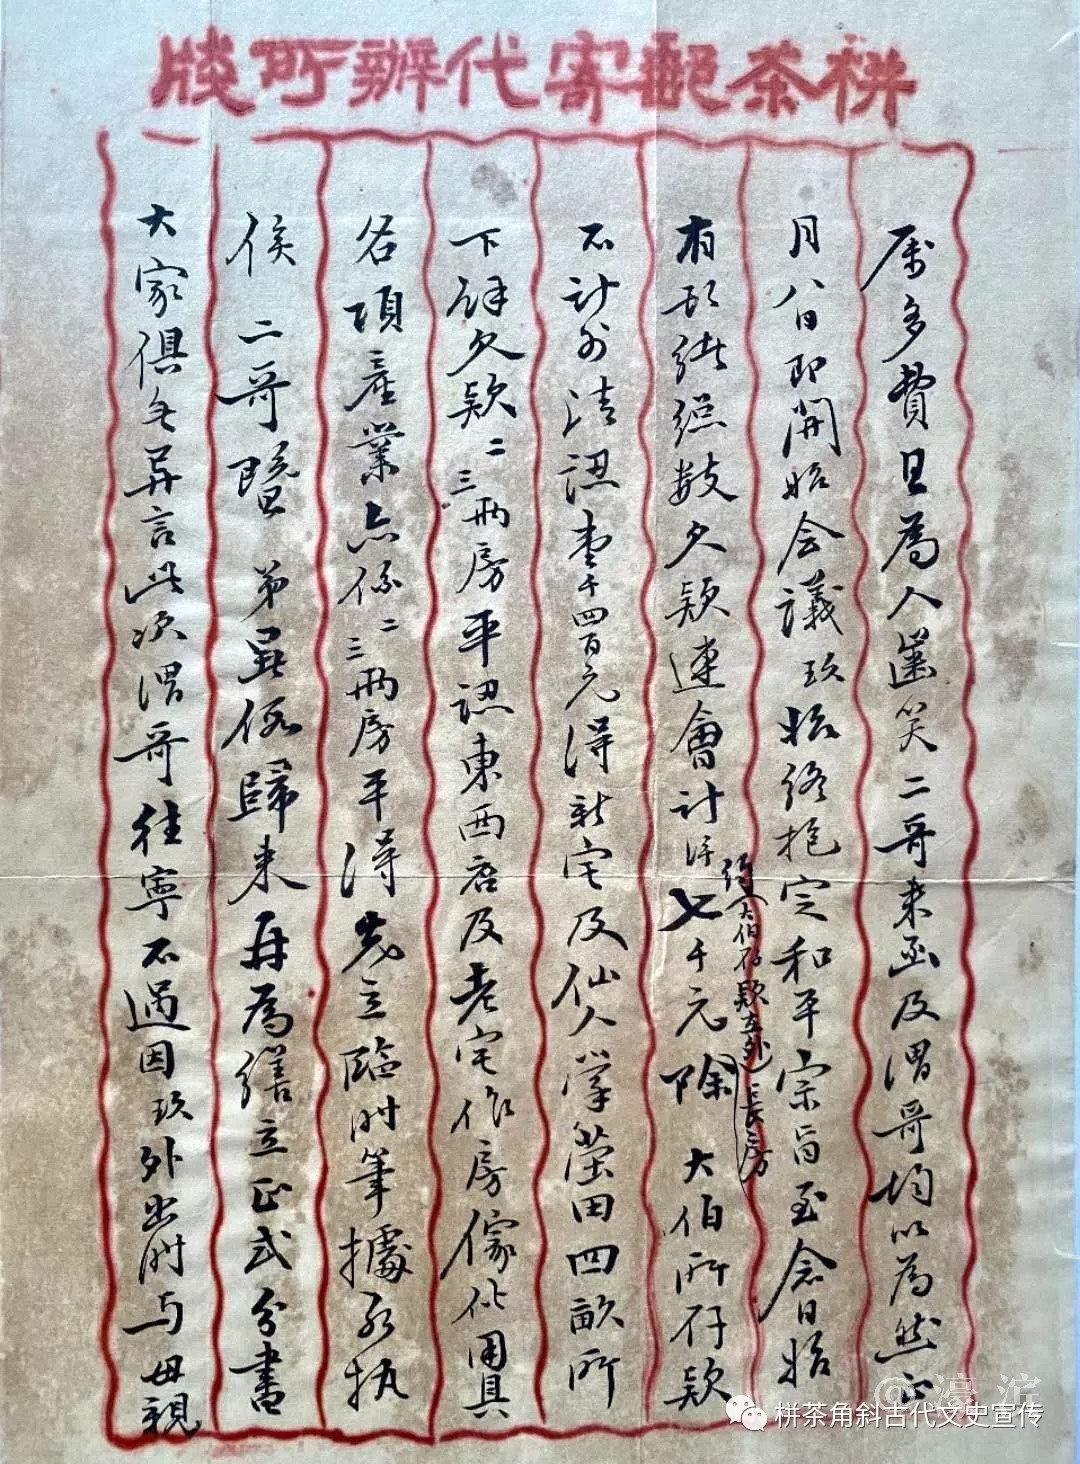 栟茶郵寄代辦所牋
屬多費且為人齒笑二哥來函及渭哥均以為然正
月八日即開始會議玖始終抱定和平宗旨至念日始
有端緒總數欠款連會計洋七千元除大伯所存款
約大伯存款在外長房
不計外清認壹千四百元得新宅及仙人掌塋田四畝所
下餘欠款二三兩房平認東西店及老宅作房傢伙用具
各項產業亦係二三兩房平得先立臨時筆據為執
俟二哥暨弟輩俱歸來再為繕立正式分書
大家俱無異言此次渭哥往寧不過因玖外出時与母親
@濠滨
栟茶角斜古代文史宣传